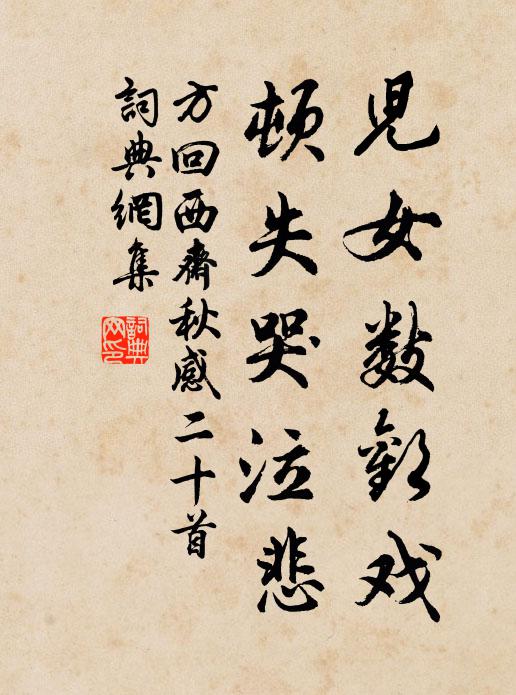 児女数歡戏
頓失哭泣悲
方回西齋秋感二十首
詞典網集
詞典
网印